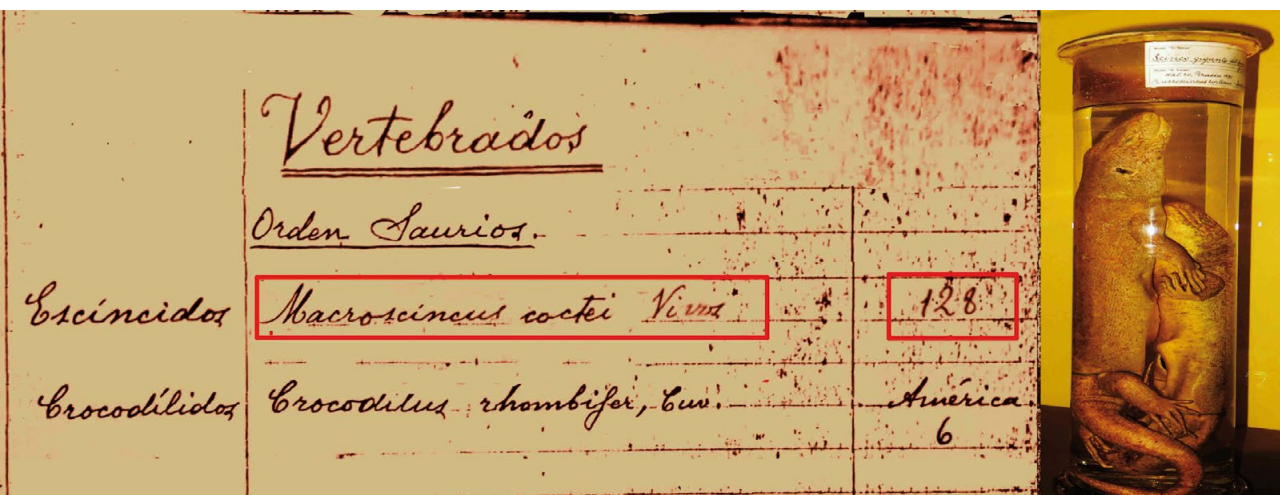 Vertebrados
Orden Saurios.
Escíncidos Macroscincus coctei Vivos 128
Crocodílidos Crocodilus rhombifer, Cuv. América.
6